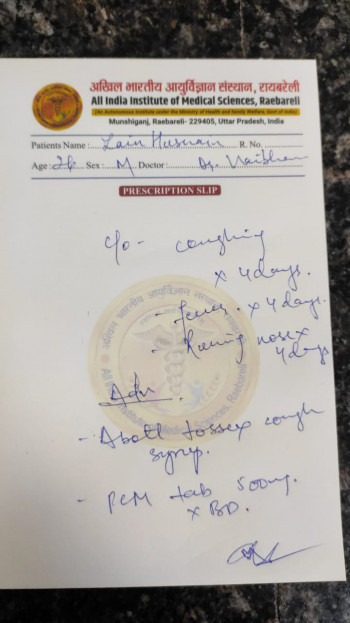 अखिल भारतीय आयुर्विज्ञान संस्थान, रायबरेली
All India Institute of Medical Sciences, Raebareli
(An Autonomous Institute under the Ministry of Health and Family Welfare, Govt. of India)
Munshiganj, Raebareli- 229405, Uttar Pradesh, India
Patients Name : Zain Husnain R. No.
Age : 26 Sex : M Doctor : Dr. Vaibhav
PRESCRIPTION SLIP
C/o - coughing
x 4 days.
- Fever x 4 days.
- Running nose x
4 days
Adv.
- Abott tossex cough
syrup.
- PCM tab 500mg.
x BD.